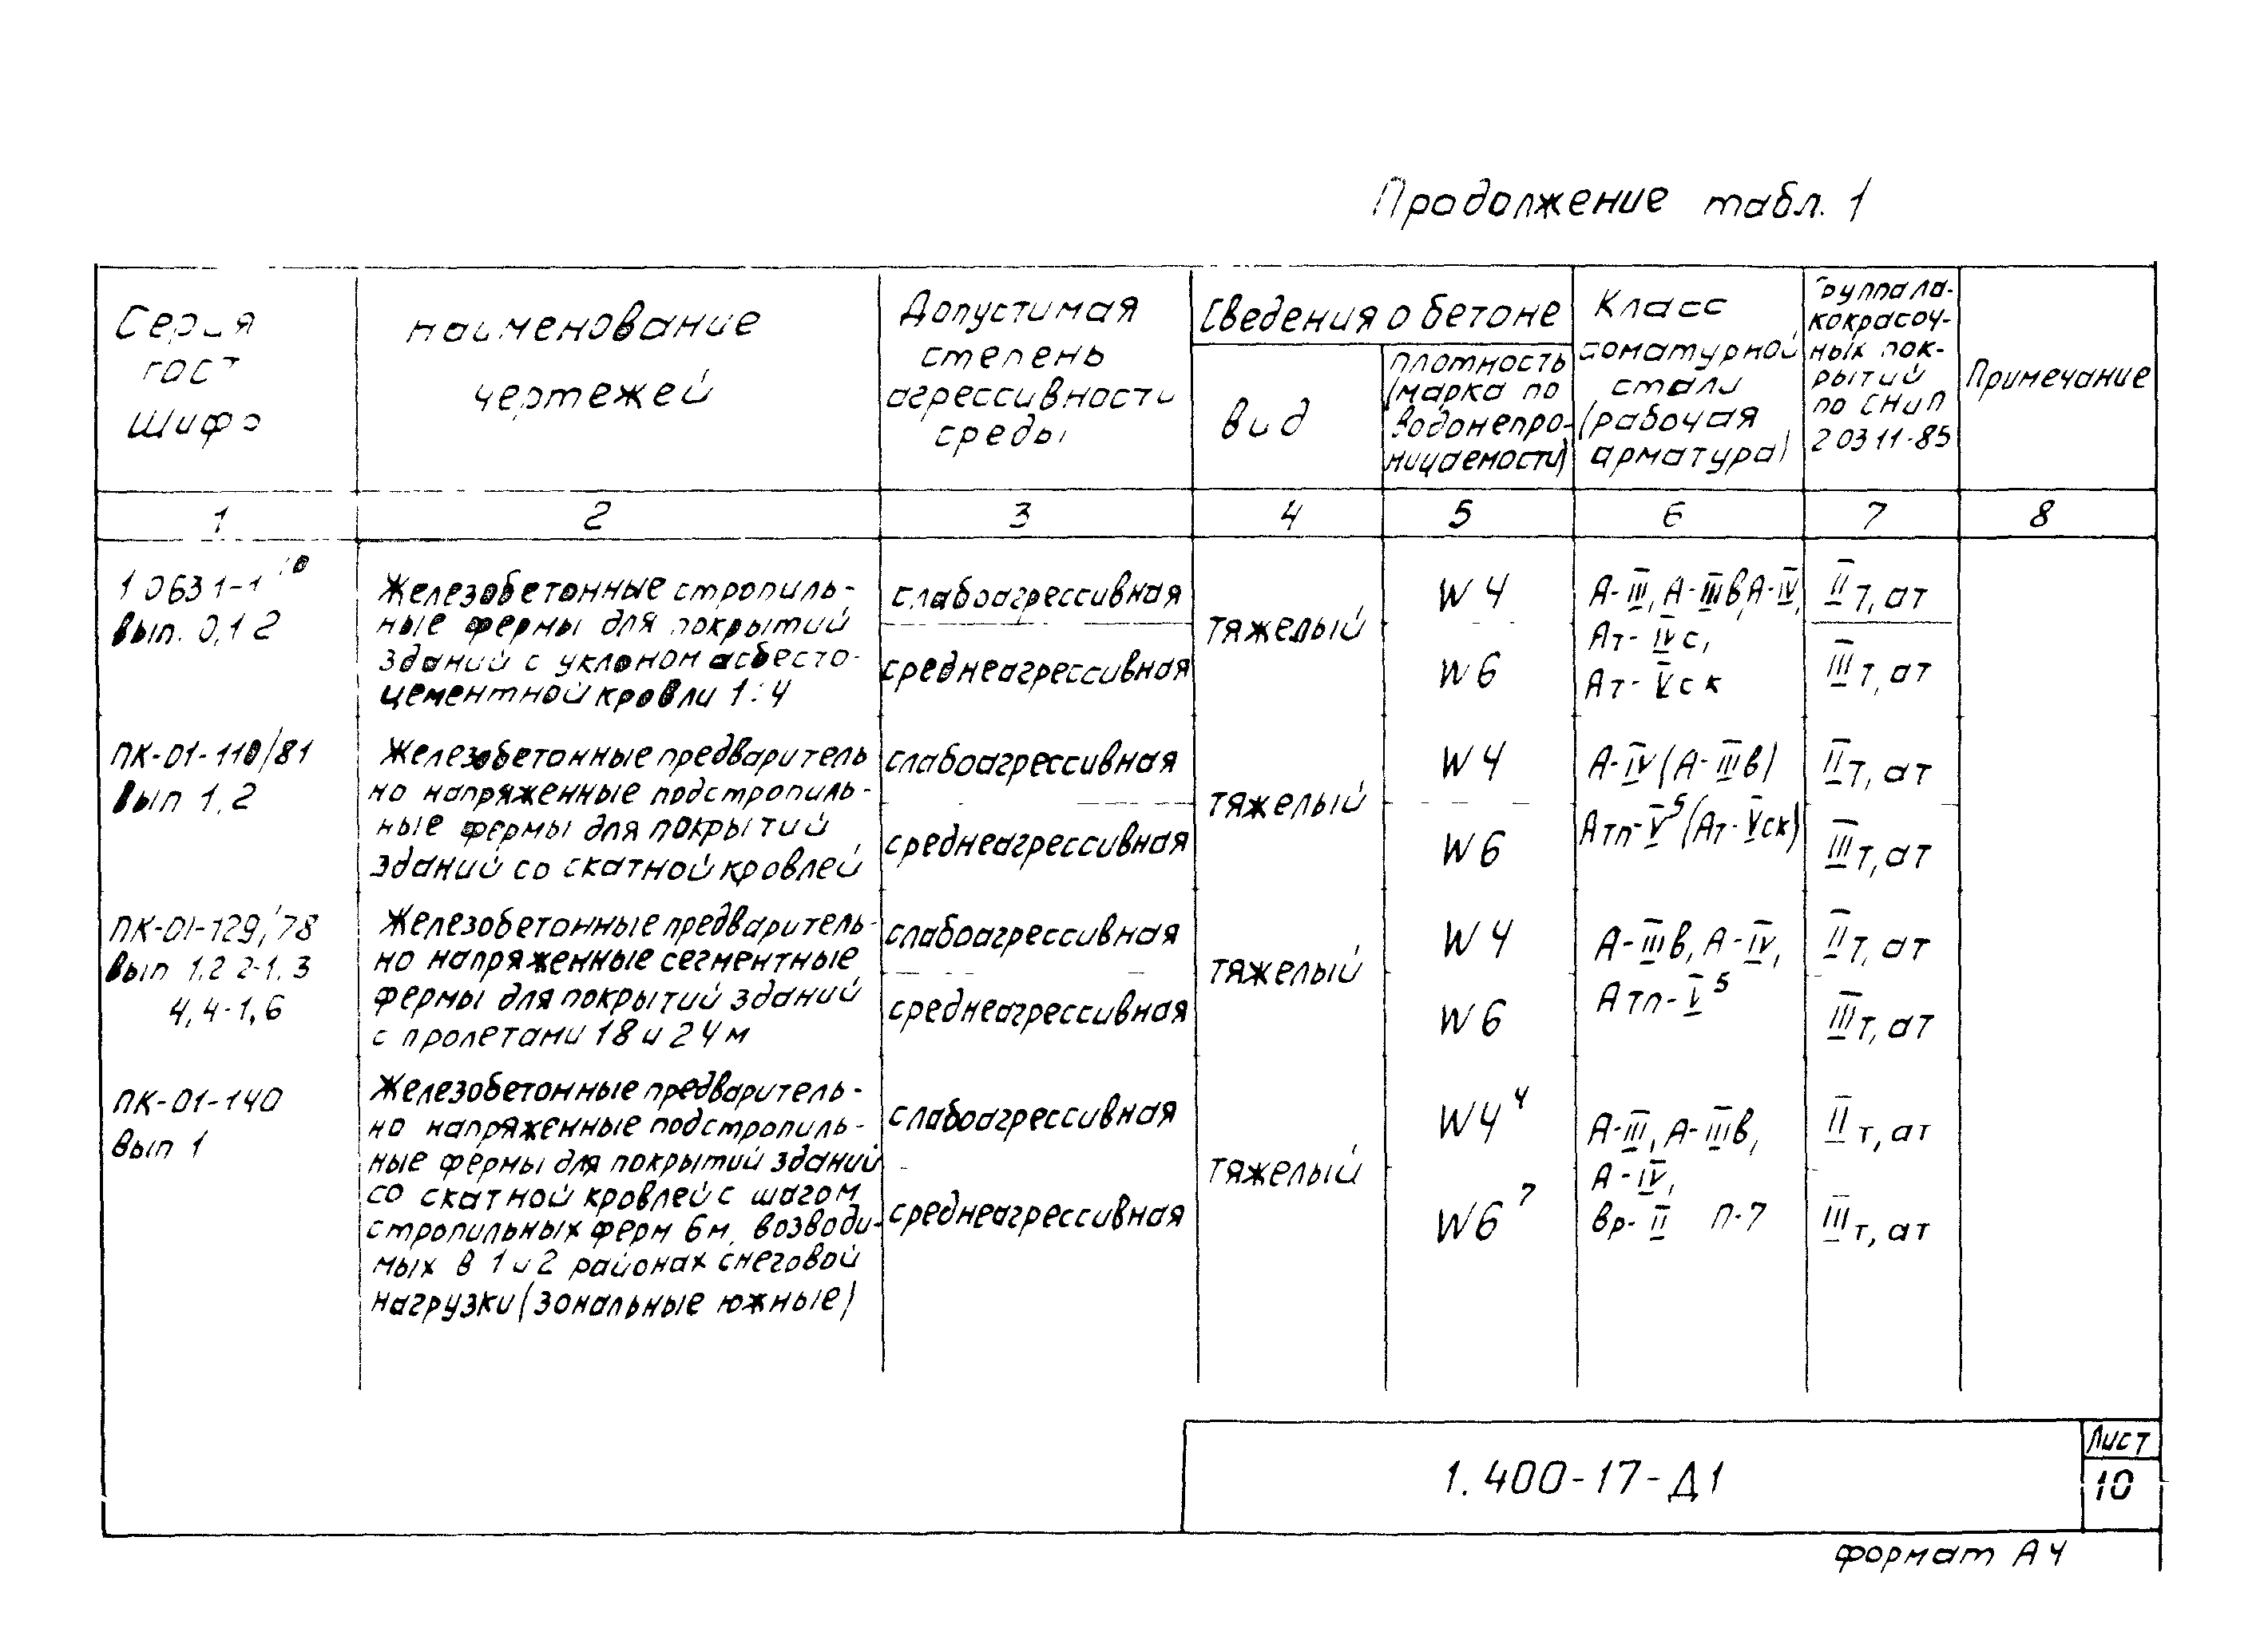 Продолжение табл. 1
Серия
гост
Шифр
наименование
чертежей
Допустимая
степень
агрессивности
среды
Сведения о бетоне
вид
плотность
(марка по
водонепро-
ницаемости)
Класс
арматурной
стали
(рабочая
арматура)
Группа ла-
кокрасоч-
ных пок-
рытий
по СНиП
2 03 11-85
Примечание
1 2 3 4 5 6 7 8
1 063 1-1
Вып. 0,1 2
Железобетонные стропиль-
ные фермы для покрытий
зданий с уклоном асбесто-
цементной кровли 1:4
слабоагрессивная
среднеагрессивная
тяжелый
W4
W6
А-III, А-IIIв, А-IV,
Ат-IVс,
Ат-Vск
II т, ат
III т, ат
ПК-01-110/81
Вып 1,2
Железобетонные предваритель
но напряженные подстропиль-
ные фермы для покрытий
зданий со скатной кровлей
слабоагрессивная
среднеагрессивная
тяжелый
W4
W6
А-IV (А-IIIв)
Атп-V⁵ (Ат-Vск)
II т, ат
III т, ат
ПК-01-129/78
Вып 1,2 2-1, 3
4, 4-1, 6
Железобетонные предваритель-
но напряженные сегментные
фермы для покрытий зданий
с пролетами 18 и 24 м
слабоагрессивная
среднеагрессивная
тяжелый
W4
W6
А-IIIв, А-IV,
Атп-V⁵
II т, ат
III т, ат
ПК-01-140
Вып 1
Железобетонные предваритель-
но напряженные подстропиль-
ные фермы для покрытий зданий
со скатной кровлей с шагом
стропильных ферм 6м, возводи-
мых в 1 и 2 районах снеговой
нагрузки (зональные южные)
слабоагрессивная
среднеагрессивная
тяжелый
W4⁴
W6⁷
А-III, А-IIIв,
А-IV,
Вр-II П-7
II т, ат
III т, ат
1.400-17-Д1
Лист
10
формат А4